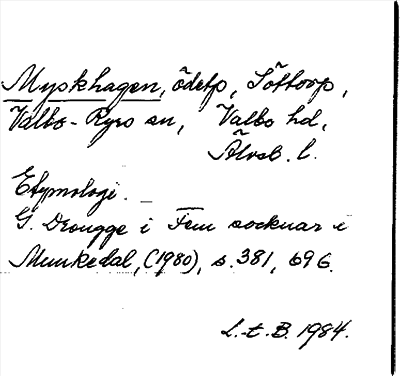 Myskhagen, ödetp, Söttorp,
Valbo-Ryrs sn, Valbo hd,
Älvsb. l.
Etymologi.
G. Drougge i Fem socknar i
Munkedal, (1980), s. 381, 696.
L.-t. B. 1984.